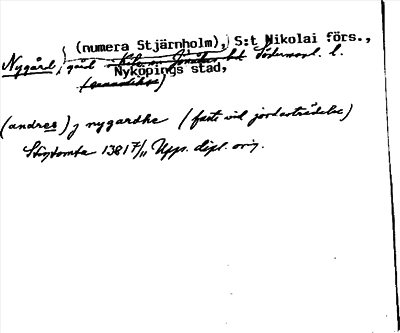 (numera Stjärnholm), S:t Nikolai förs.,
Nygård, gård Södermanl. l.
Nyköpings stad,
(andres) j nygardhe (faste vid jordaträdelse)
Stigtomta 1381 7/11 Upps. dipl. orig.